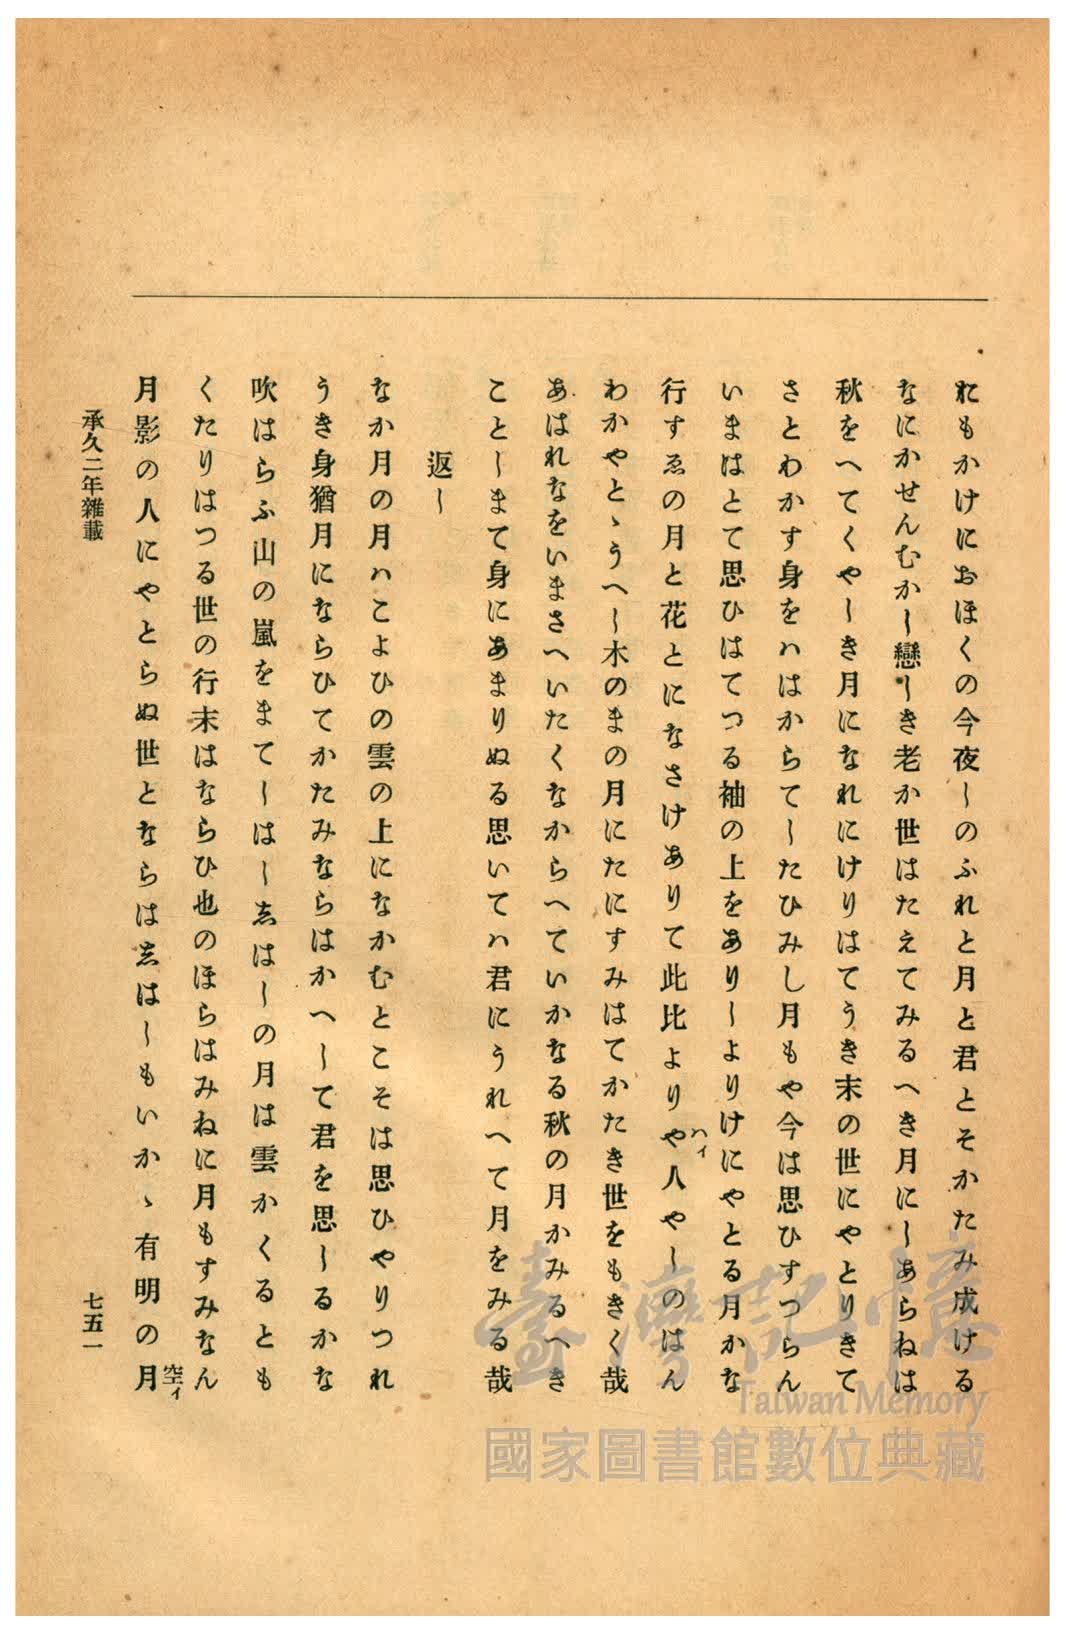 れもかけにおほくの今夜しのふれと月と君とそかたみ成ける
なにかせんむかし戀しき老か世はたえてみるへき月にしあらねは
秋をへてくやしき月になれにけりはてうき末の世にやとりきて
さとわかす身をハはからてしたひみし月もや今は思ひすつらん
いまはとて思ひはてつる袖の上をありしよりけにやとる月かな
行すゑの月と花とになさけありて此比よりや人やしのはん
ハイ
わかやとゝうへし木のまの月にたにすみはてかたき世をもきく哉
あはれなをいまさへいたくなからへていかなる秋の月かみるへき
ことしまて身にあまりぬる思いてハ君にうれへて月をみる哉
返し
なか月の月ハこよひの雲の上になかむとこそは思ひやりつれ
うき身猶月にならひてかたみならはかへして君を思しるかな
吹はらふ山の嵐をまてしはし志はしの月は雲かくるとも
くたりはつる世の行末はならひ也のほらはみねに月もすみなん
空イ
月影の人にやとらぬ世とならは志はしもいかゝ有明の月
承久二年雜載
七五一
臺灣記憶
Taiwan Memory
國家圖書館數位典藏